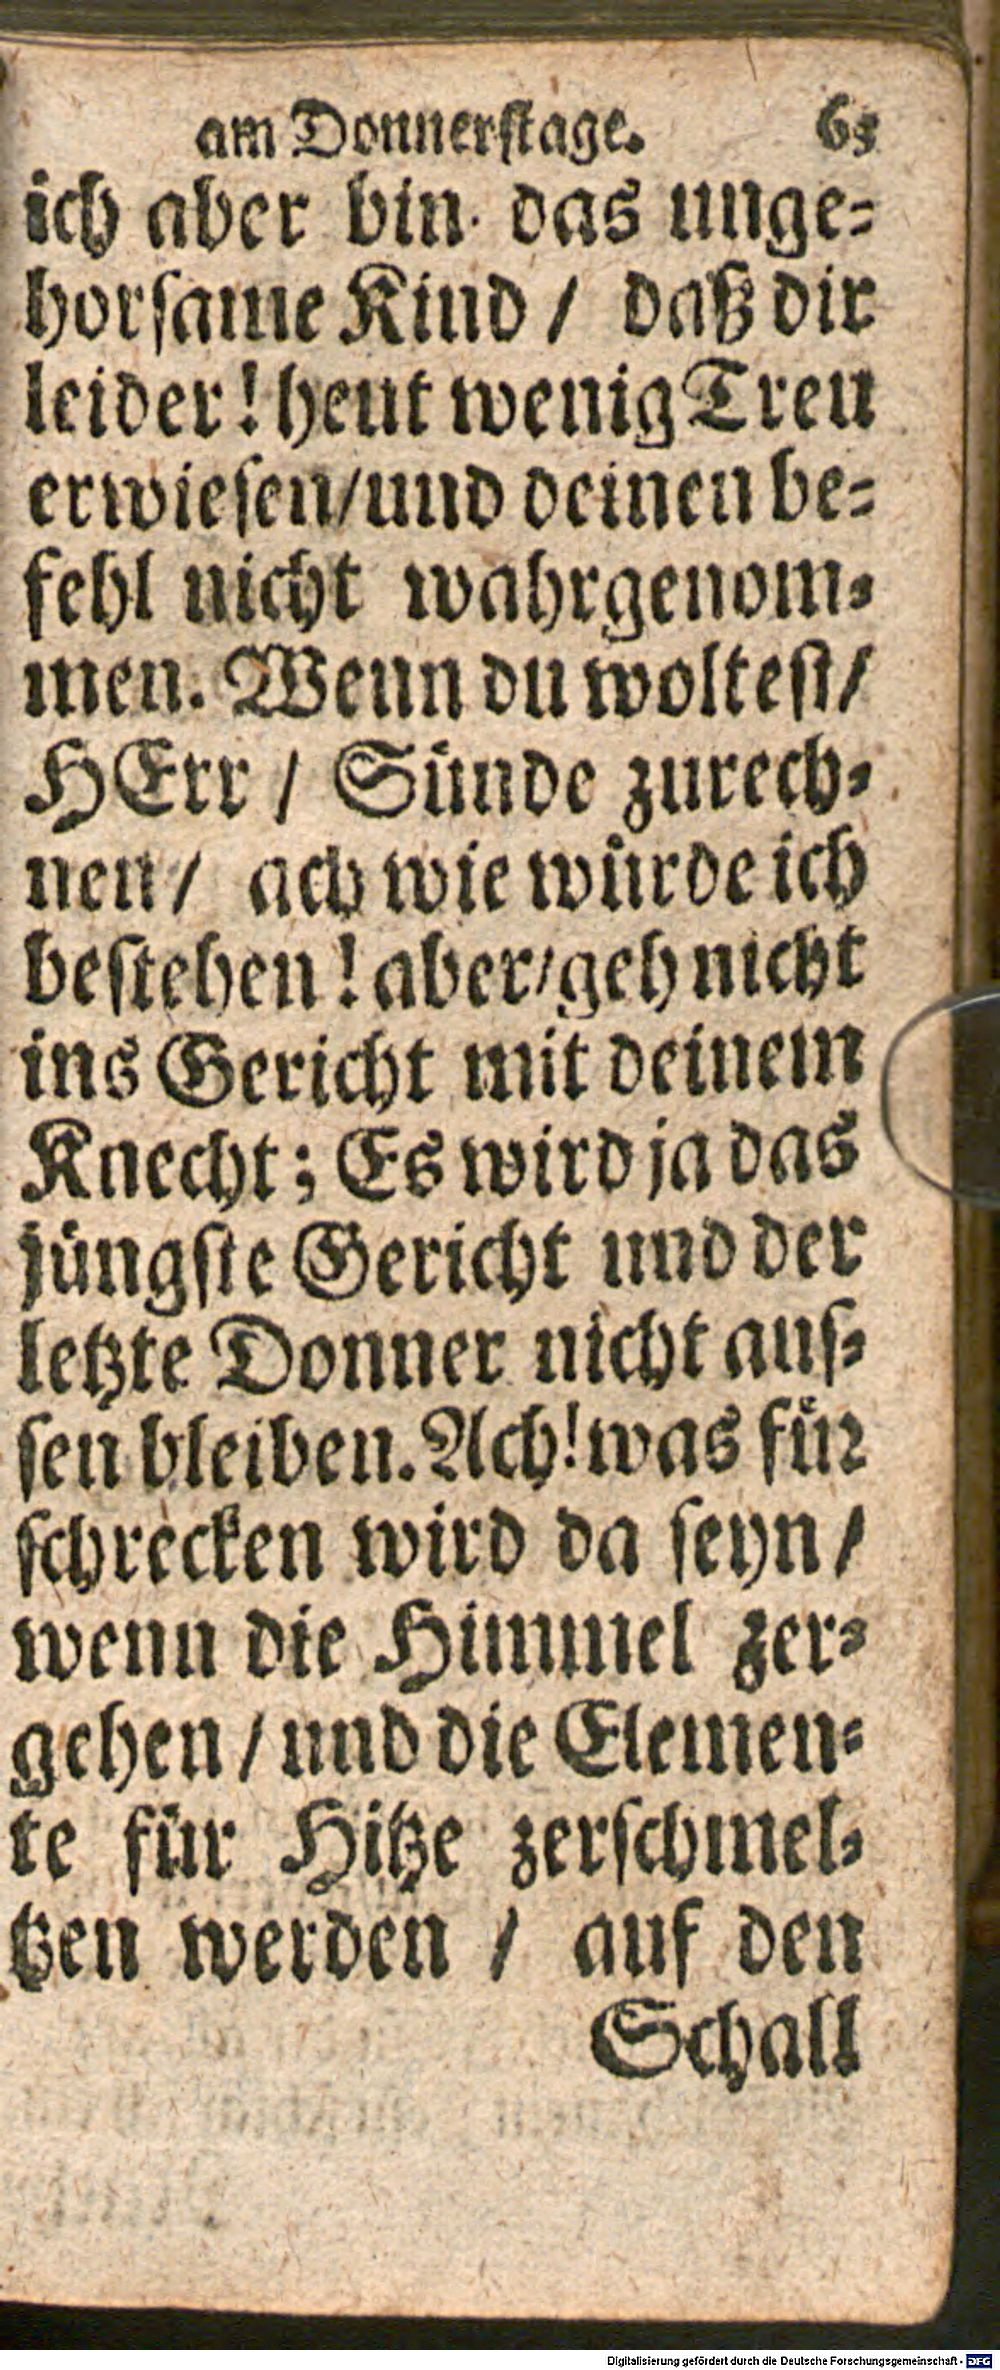 am Donnerstage. 65
ich aber bin das unge-
horsame Kind / daß dir
leider! heut wenig Treu
erwiesen/und deinen be-
fehl nicht wahrgenom-
men. Wenn du woltest/
HErr / Sünde zurech-
nen / ach wie würde ich
bestehen! aber/geh nicht
ins Gericht mit deinem
Knecht; Es wird ja das
jüngste Gericht und der
letzte Donner nicht aus-
sen bleiben. Ach! was für
schrecken wird da seyn /
wenn die Himmel zer-
gehen / und die Elemen-
te für Hitze zerschmel-
tzen werden / auf den
Schall
Digitalisierung gefördert durch die Deutsche Forschungsgemeinschaft - DFG